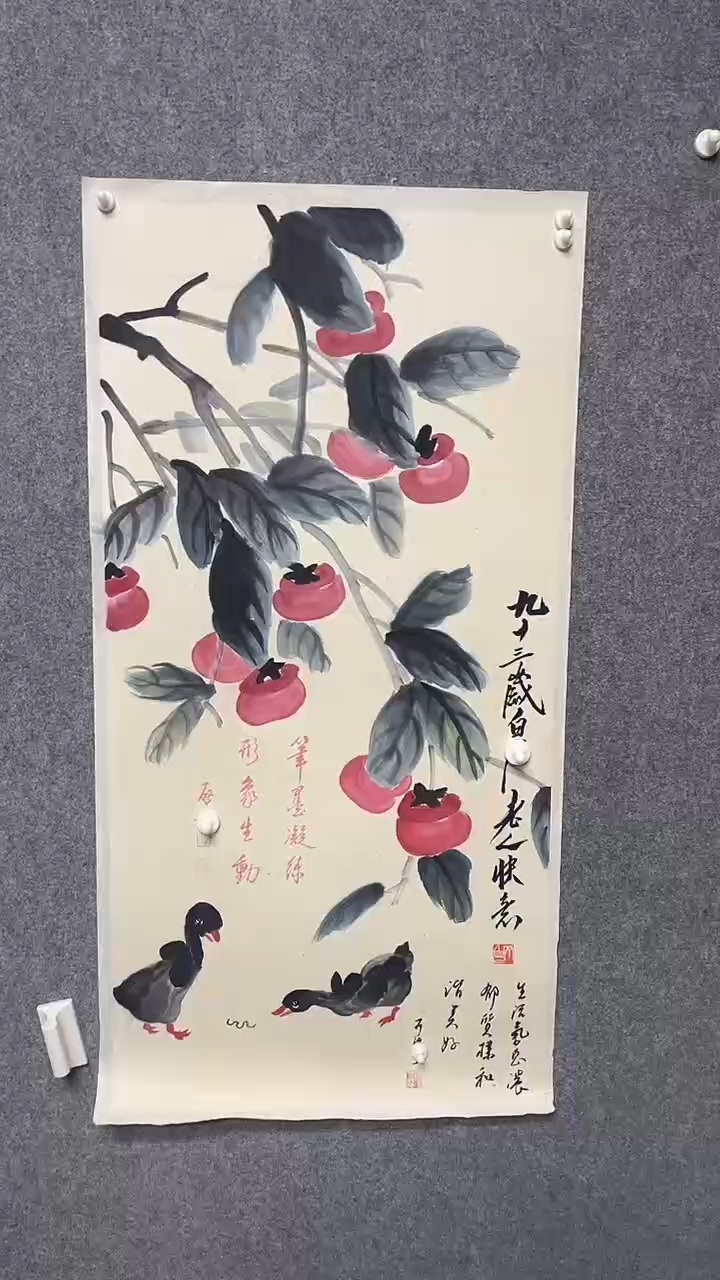 九十三歲白
老人快意
筆墨凝練
形象生動
啟
生活氣息濃
郁質樸和
諧美好